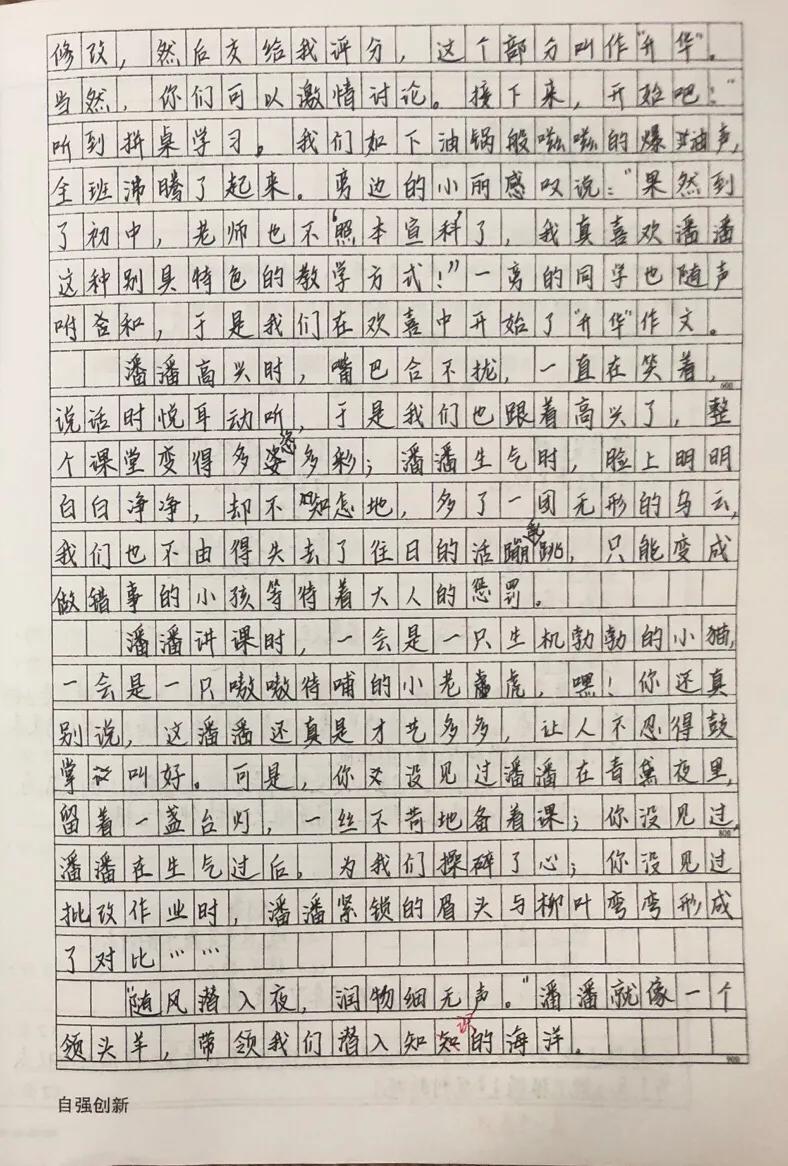 修改，然后交给我评分，这个部分叫作“升华”。
当然，你们可以激情讨论。接下来，开始吧！”
听到拼桌学习。我们如下油锅般嗞嗞的爆油声，
全班沸腾了起来。旁边的小丽感叹说：“果然到
了初中，老师也不‘照本宣科’了，我真喜欢潘潘
这种别具特色的教学方式！”一旁的同学也随声
咐和，于是我们在欢喜中开始了“升华”作文。
潘潘高兴时，嘴巴合不拢，一直在笑着，
600
说话时悦耳动听，于是我们也跟着高兴了，整
个课堂变得多姿多彩；潘潘生气时，脸上明明
白白净净，却不知怎地，多了一团无形的乌云，
我们也不由得失去了往日的活蹦乱跳，只能变成
做错事的小孩等待着大人的惩罚。
潘潘讲课时，一会是一只生机勃勃的小猫，
一会是一只嗷嗷待哺的小老虎，嘿！你还真
别说，这潘潘还真是才艺多多，让人不忍得鼓
掌叫好。可是，你又没见过潘潘在青黛夜里，
留着一盏台灯，一丝不苟地备着课；你没见过，
800
潘潘在生气过后，为我们操碎了心；你没见过
批改作业时，潘潘紧锁的眉头与柳叶弯弯形成
了对比……
“随风潜入夜，润物细无声。”潘潘就像一个
领头羊，带领我们潜入知识的海洋。
900
自强创新